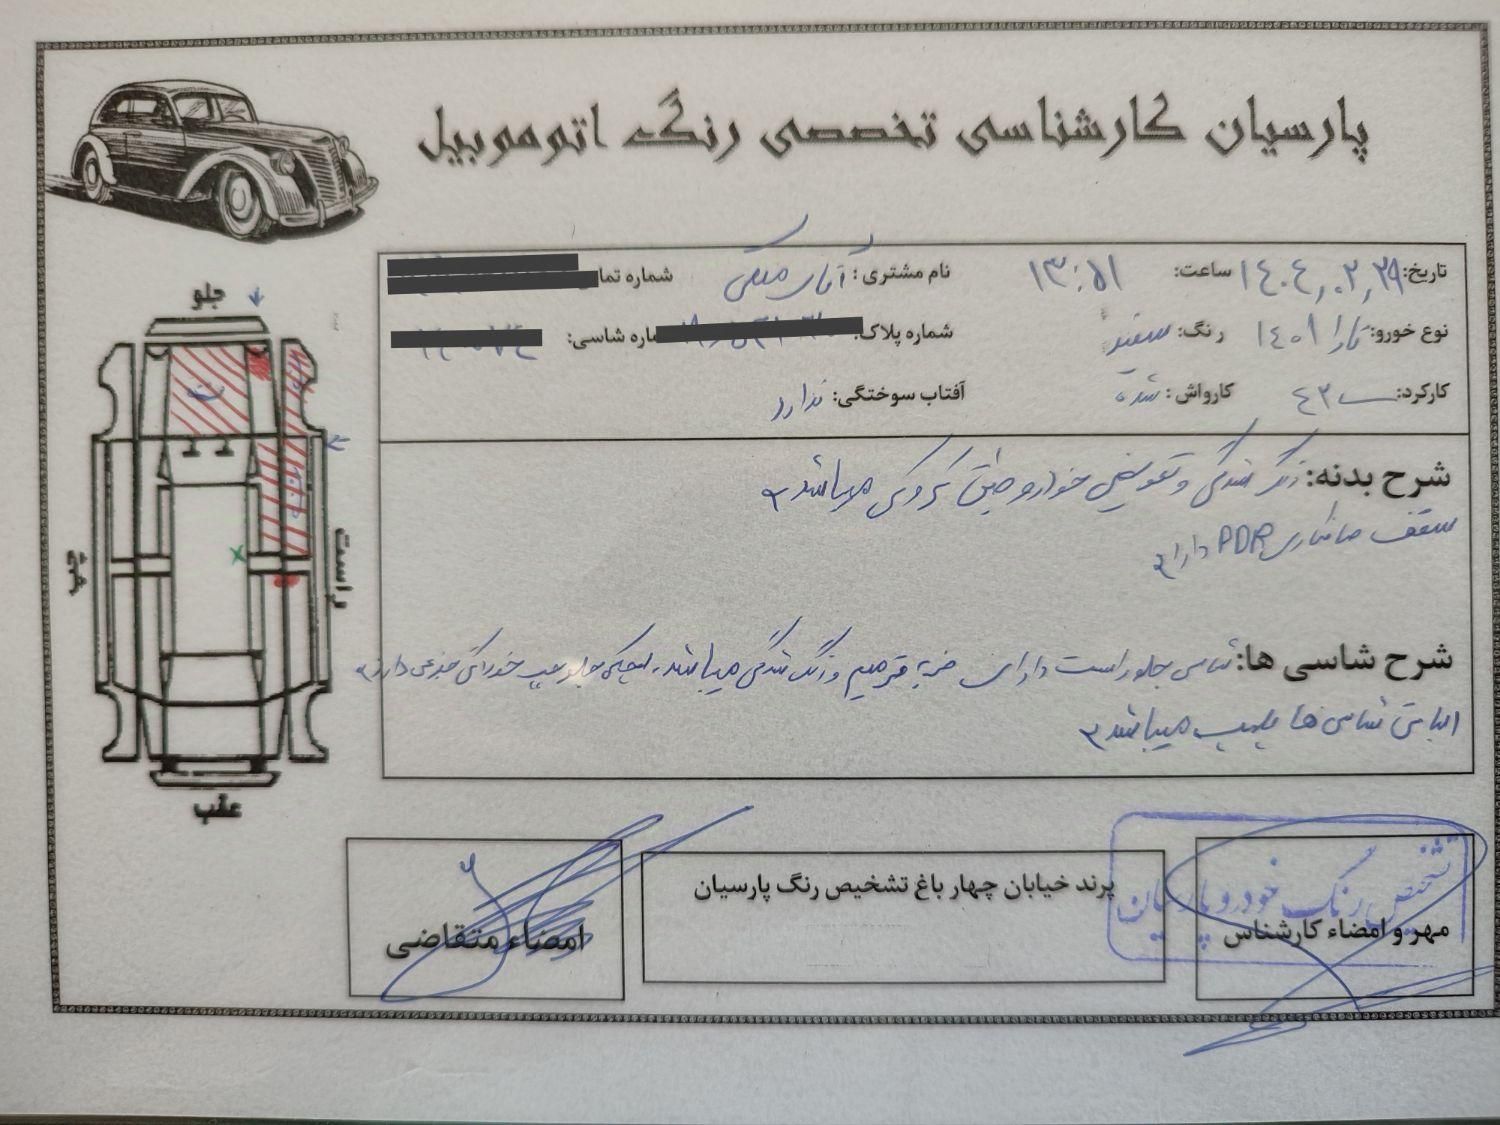 پارسیان کارشناسی تخصصی رنگ اتوموبیل
تاریخ: ۱۴۰۴,۰۲,۲۹ ساعت: ۱۳:۵۱ نام مشتری: آقای شماره تما
نوع خورو: تارا ۱۴۰۱ رنگ: سفید شماره پلاک: ماره شاسی:
کارکرد: ۴۲ کارواش: شده آفتاب سوختگی: ندارد
شرح بدنه: رنگ شدگی و تعویضی خودرو طبق کروکی میباشد
سقف صافکاری PDR دارد
شرح شاسی ها: شاسی جلو راست دارای ضربه ترمیم و رنگ شدگی میباشد. سینی جلو چپ خوردگی جزعی دارد
الباقی شاسی ها پلمپ میباشد
جلو
چپ
راست
عقب
مهر و امضاء کارشناس
تشخیص رنگ خودرو پارسیان
پرند خیابان چهار باغ تشخیص رنگ پارسیان
امضاء متقاضی